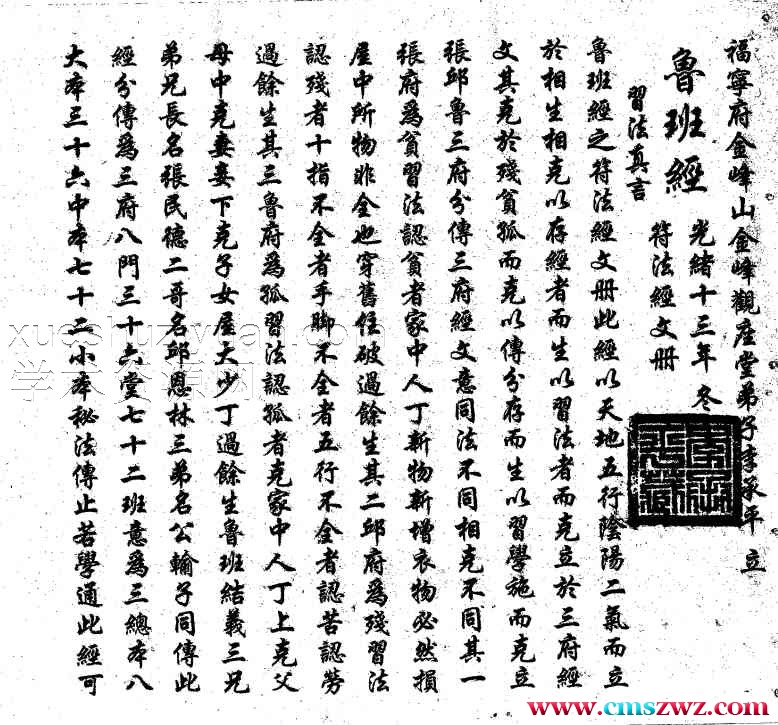 福寧府金峰山金峰觀座堂弟子李承平 立
魯班經 光緒十三年 冬
符法經文册
習法真言
魯班經之符法經文册此經以天地五行陰陽二氣而立
於相生相克以存經者而生以習法者而克立於三府經
文其克於殘貧孤而克以傳分存而生以習學施而克立
張邱魯三府分傳三府經文意同法不同相克不同其一
張府爲貧習法認貧者家中人丁新物新增衣物必然損
屋中所物非全也穿舊住破過餘生其二邱府爲殘習法
認殘者十指不全者手脚不全者五行不全者認苦認勞
過餘生其三魯府爲孤習法認孤者克家中人丁上克父
母中克妻妾下克子女屋大少丁過餘生魯班結義三兄
弟兄長名張民德二哥名邱恩林三弟名公輸子同傳此
經分傳爲三府八門三十六堂七十二班意爲三總本八
大本三十六中本七十二小本秘法傳止若學通此經可
xueshuziyuan.com
学术资源网
www.cmszwz.com